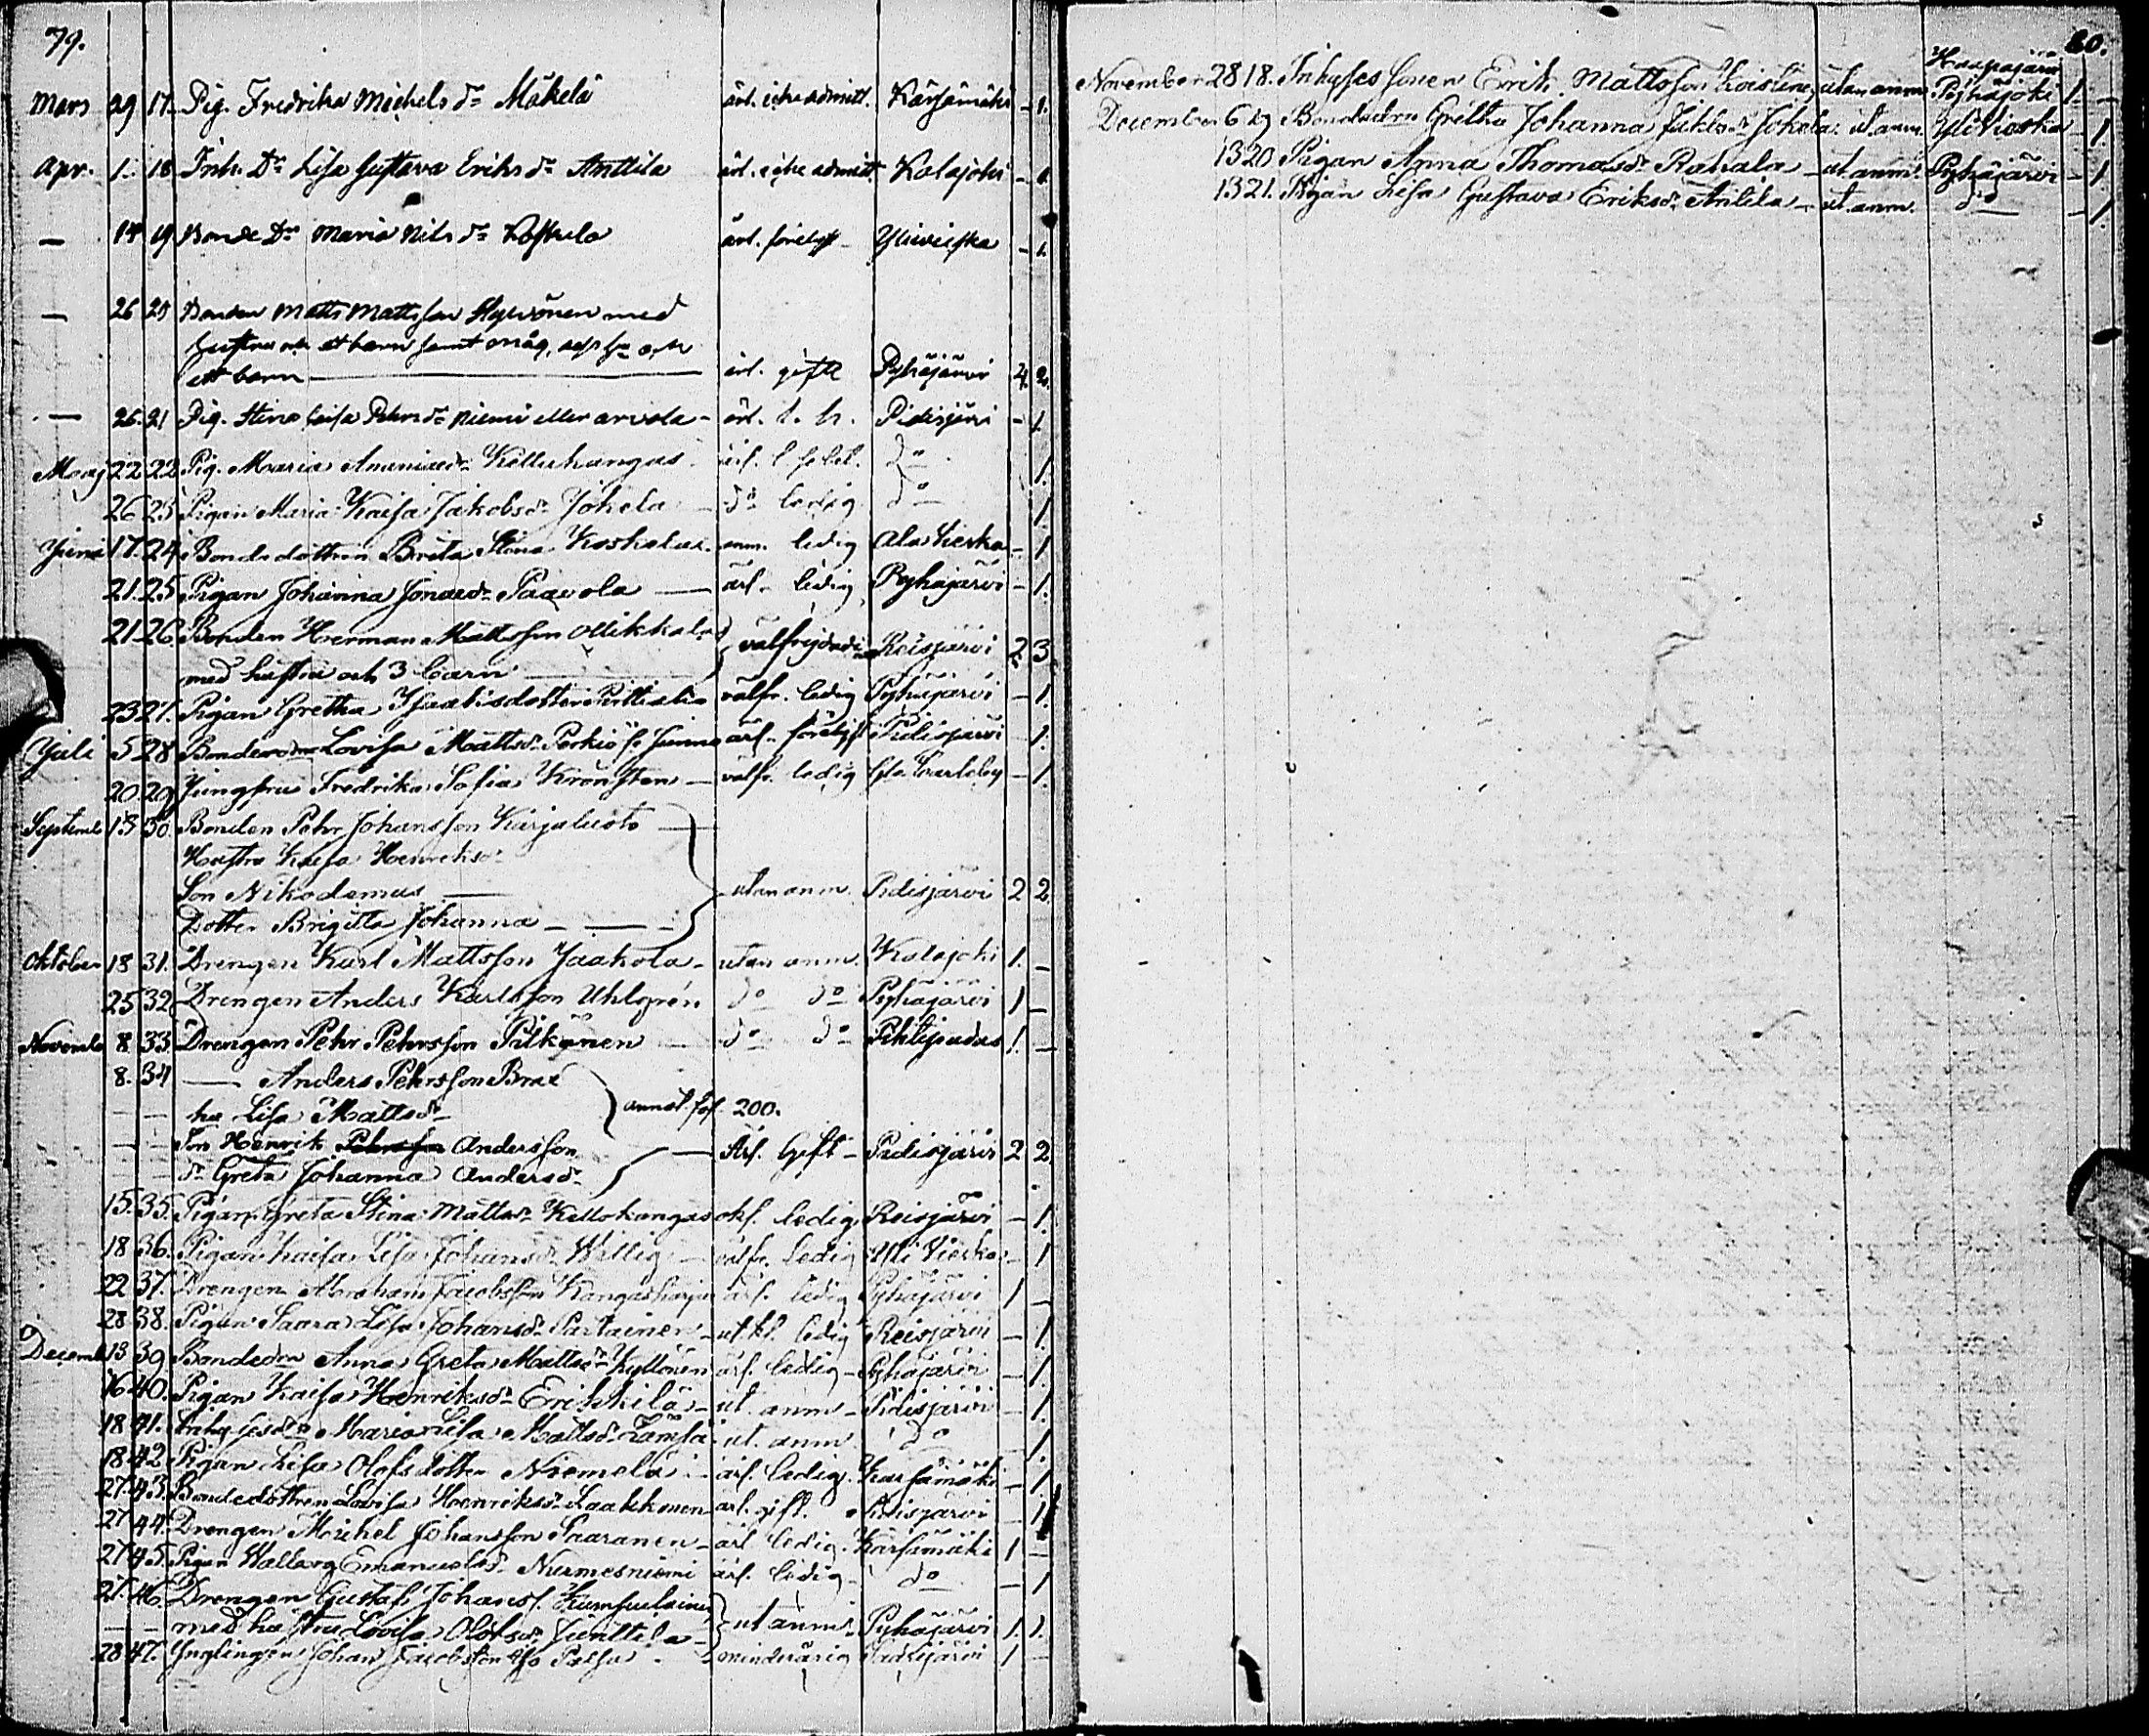 79.
Mars 29 17. Pig. Fredrika Michels dr Mäkelä ärl. icke admitt. Kärsämäki - 1.
Apr. 1. 18 Inh. Dr Lisa Gustava Eriks dr Anttila ärl. icke admitt. Kalajoki - 1.
— 14 19 Bonde Dr Maria Nils dr Koskela Ylivieska - 1.
— 26 20 Bonden Matts Mattsson Hyvönen med
hustru och ett barn samt
ett barn — ärl. gift Pyhäjärvi 4. 2.
— 26. 21 Pig. Stina Caisa Pehrs dr Niemi eller Arvola - ärl. Pidisjärvi - 1.
Maaj 22 22 Pig. Maria Ananiaedr Kelluhangas do 1.
26 23 Pigan Maria Kaisa Jakobsdr Johela do ledig do 1
Juni 17. 24 Bondedottren Brita Stina ledig Ala Vieska - 1
21. 25 Pigan Johanna Jonaedr Paavola — ärl. ledig Pyhäjärvi - 1.
21 26 Bonden Herman Mattsson Ollikkala
med hustru och 3 barn Reisjärvi 2 3
23 27. Pigan Gretha Isaaksdotter välfr. ledig Pyhäjärvi - 1.
Juli 5 28 Bondedra Lovisa Mattsdr Pidisjärvi - 1.
20 29 Jungfru Fredrika Sofia Kronsten — välfr. ledig Gla Carleby - 1.
Septemb 13 30. Bonden Pehr Johansson Karjaluoto —
Hustru Kaisa Henriksdr
Son Nikodemus — utan anm. Pidisjärvi 2 2.
Dotter Brigitta Johanna —
Oktober 18 31. Drengen Karl Mattsson Jaakola - utan anm. Kalajoki 1. -
25 32 Drengen Anders Karlsson Uhlgrén do do Pyhäjärvi 1 -
Novemb 8 33 Drengen Pehr Pehrsson Pitkänen — do do Pihtipudas 1. -
8. 34 — Anders Pehrsson
hu Lisa Mattsdr 200.
Son Henrik Pehrsson Andersson — Ärl. Gift - Pidisjärvi 2 2
dr Greta Johanna Andersdr
15. 35. Pigan Greta Stina Mattsdr Kellokangas ledig Reisjärvi - 1.
18 36. Pigan Kaisa Lisa Johansdr Willig — välfr. ledig Yli Vieska - 1
22 37. Drengen Abraham Jacobsson Kangasharju ärl. ledig Pyhäjärvi 1 -
28 38. Pigan Saara Lisa Johansdr Partainen ledig Reisjärvi - 1.
Decemb 13 39 Bondedra Anna Greta Mattsdr Kyllönen ärl. ledig - Pyhäjärvi - 1.
16 40. Pigan Kaisa Henriksdr Erikkilä - ut. anm - Pidisjärvi - 1.
18 41. Maria Lisa Mattsdr ut. anm do - 1.
18 42 Pigan Lisa Olofsdotter Niemelä - ärl. ledig. Kärsämäki - 1
27 43. Bondedottren Lovisa Henriksdr Laakkonen ärl. gift. Pidisjärvi - 1
27 44. Drengen Michel Johansson Saaranen - ärl ledig. Kärsämäki 1 -
27 45. Pigan Walborg Emanuelsdr Nurmesniemi ärl. ledig - do - 1
27. 46. Drengen Gustaf Johanss.
— med hustru Lovisa Olofsdr Junttila - ut anm. Pyhäjärvi 1. 1.
28 47. Ynglingen Johan Jacobsson minderårig 1 -
80.
Haapajärvi
November 28 18. Inhyses sonen Errik Mattsson Koistinen utan anm Pyhäjoki 1. -
December 6 19 Bondedra Gretha Johanna Jakbsdr Johela ut anm. Yli Vieska - 1
13 20 Pigan Anna Thomasdr Rahala - ut anm. Pyhäjärvi - 1
13 21. Pigan Lisa Gustava Eriksdr Anttila - ut. anm. do - 1.